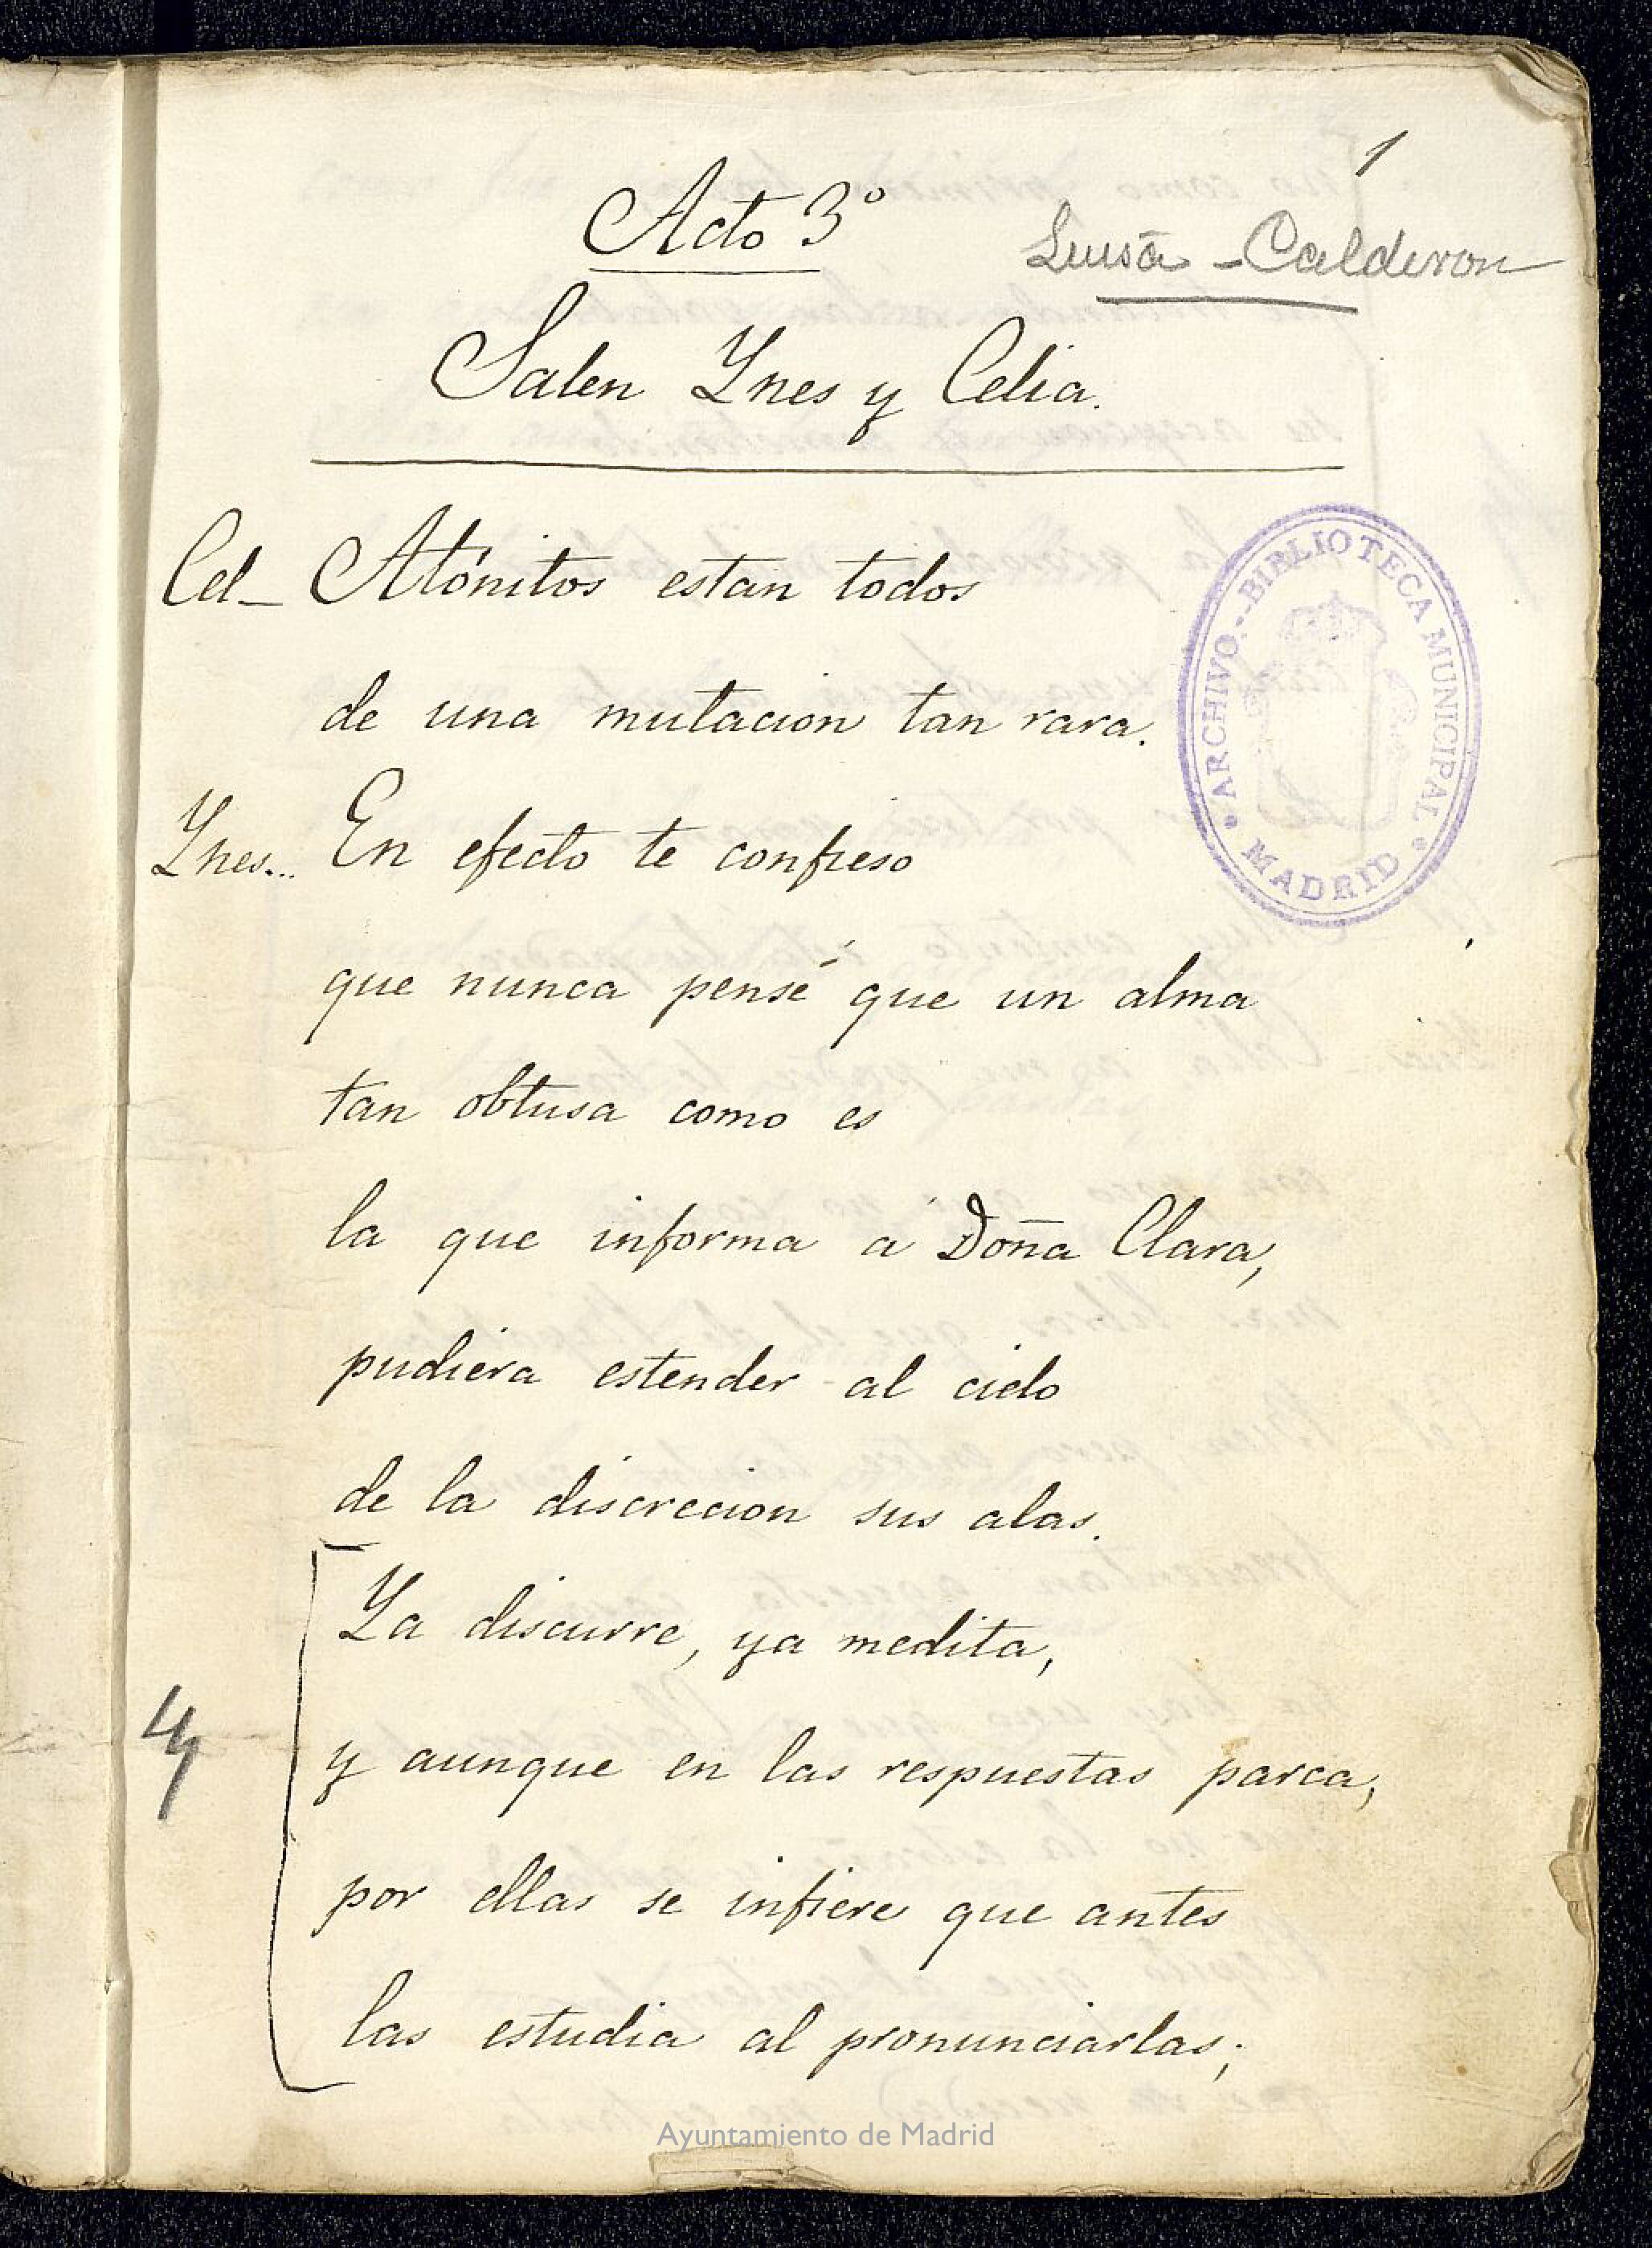 1
Acto 3º
Luisa - Calderon
Salen Ynes y Celia.
Cel_ Atónitos estan todos
de una mutacion tan rara.
Ynes... En efecto te confieso
que nunca pensé que un alma
tan obtusa como es
la que informa á Doña Clara,
pudiera estender al cielo
de la discrecion sus alas.
Ya discurre, ya medita,
y aunque en las respuestas parca,
por ellas se infiere que antes
las estudia al pronunciarlas;
ARCHIVO.-BIBLIOTECA MUNICIPAL
MADRID
Ayuntamiento de Madrid